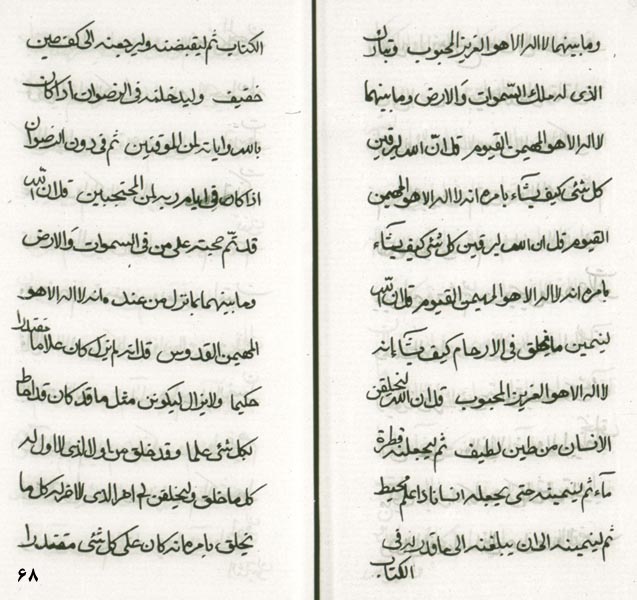 وما بينهما لا اله الا هو العزيز المحبوب وتبارك
الذي له ملك السموات والارض وما بينهما
لا اله الا هو المهيمن القيوم قل ان الله ليرقين
كل شئ كيف يشاء بامره انه لا اله الا هو المهيمن
القيوم قل ان الله ليرقين كل شئ كيف يشاء
بامره انه لا اله الا هو المهيمن القيوم قل ان الله
لينمين ما خلق في الارحام كيف يشاء بانه
لا اله الا هو العزيز المحبوب قل ان الله ليخلقن
الانسان من طين لطيف ثم ليجعلنه قطرة
ماء ثم لينمينه حتى يجعله انسانا ذا علم محيط
ثم لينمينه الى ان يبلغنه الى ما قدر له في
الكتاب
الكتاب ثم ليقبضنه وليرجعنه الى كف طين
خفيف وليدخلنه في الرضوان اذا كان
بالله واياته لمن الموقنين ثم في دون الرضوان
اذا كان في ايام ربه لمن المحتجبين قل ان الله
قد تم حجته على من في السموات والارض
وما بينهما بما نزل من عنده وانه لا اله الا هو
المهيمن القدوس قل الله لم يزل كان علاما مقتدرا
حكيما ولا يزال ليكونن مثل ما قد كان قد احاط
بكل شئ علما وقد خلق من اول الذي لا اول له
كل ما خلق وليخلقن الى اخر الذي لا اخر له كل ما
يخلق بامره انه كان على كل شئ مقتدرا
۶۸